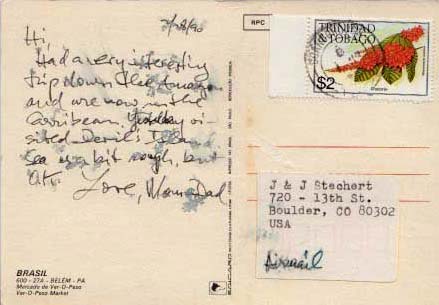 2/28/90
Hi,
Had a very interesting
trip down the Amazon
and are now in the
Carribean. Yesterday vi-
sited Devil's Island
Sea is a bit rough, but
O.K.
Love, Mom & Dad
BRASIL
600 - 27A - BELÉM - PA
Mercado de Ver-O-Peso
Ver-O-Peso Market
RPC
TRINIDAD
& TOBAGO
$2
J & J Stechert
720 - 13th St.
Boulder, CO 80302
USA
Airmail